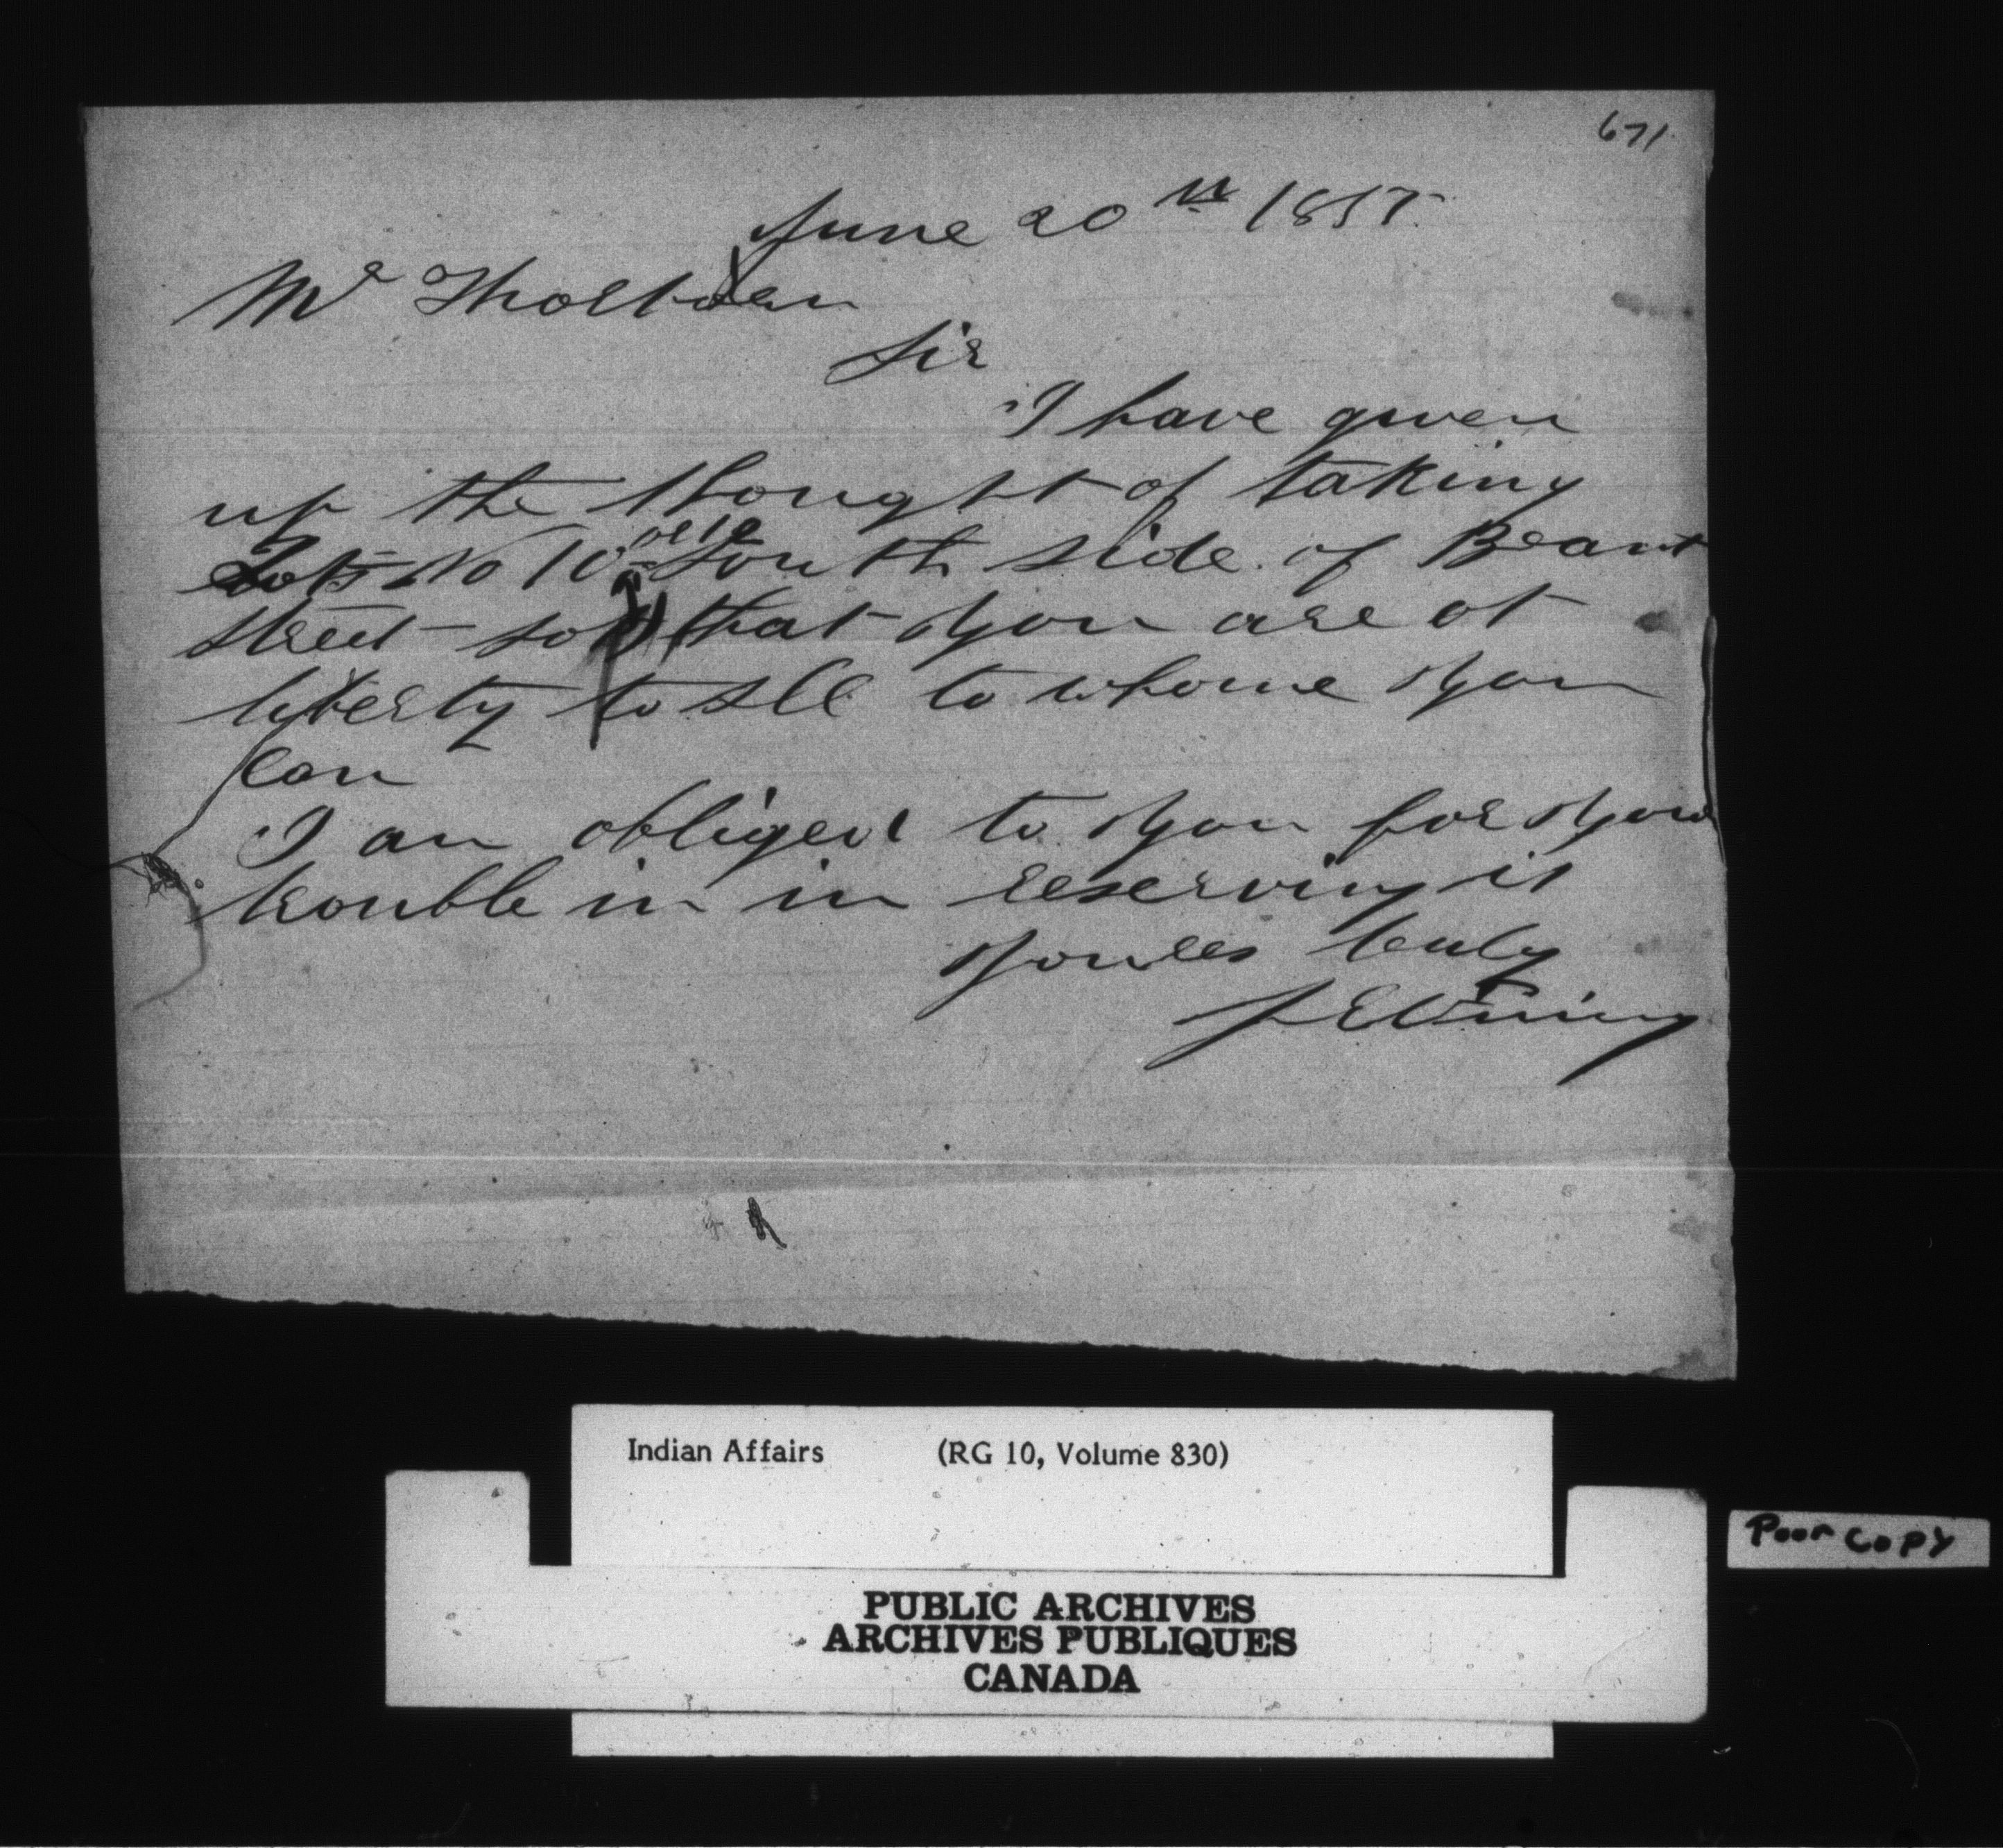 671
June 20th 1857
Mr Thorburn
Sir
I have given
up the thought of taking
Lots No 10 South side of Brant
Street so that you are at
liberty to sell to whome you
can
I am obliged to you for your
trouble in in reserving it
Yours truly
Indian Affairs (RG 10, Volume 830)
Poor Copy
PUBLIC ARCHIVES
ARCHIVES PUBLIQUES
CANADA